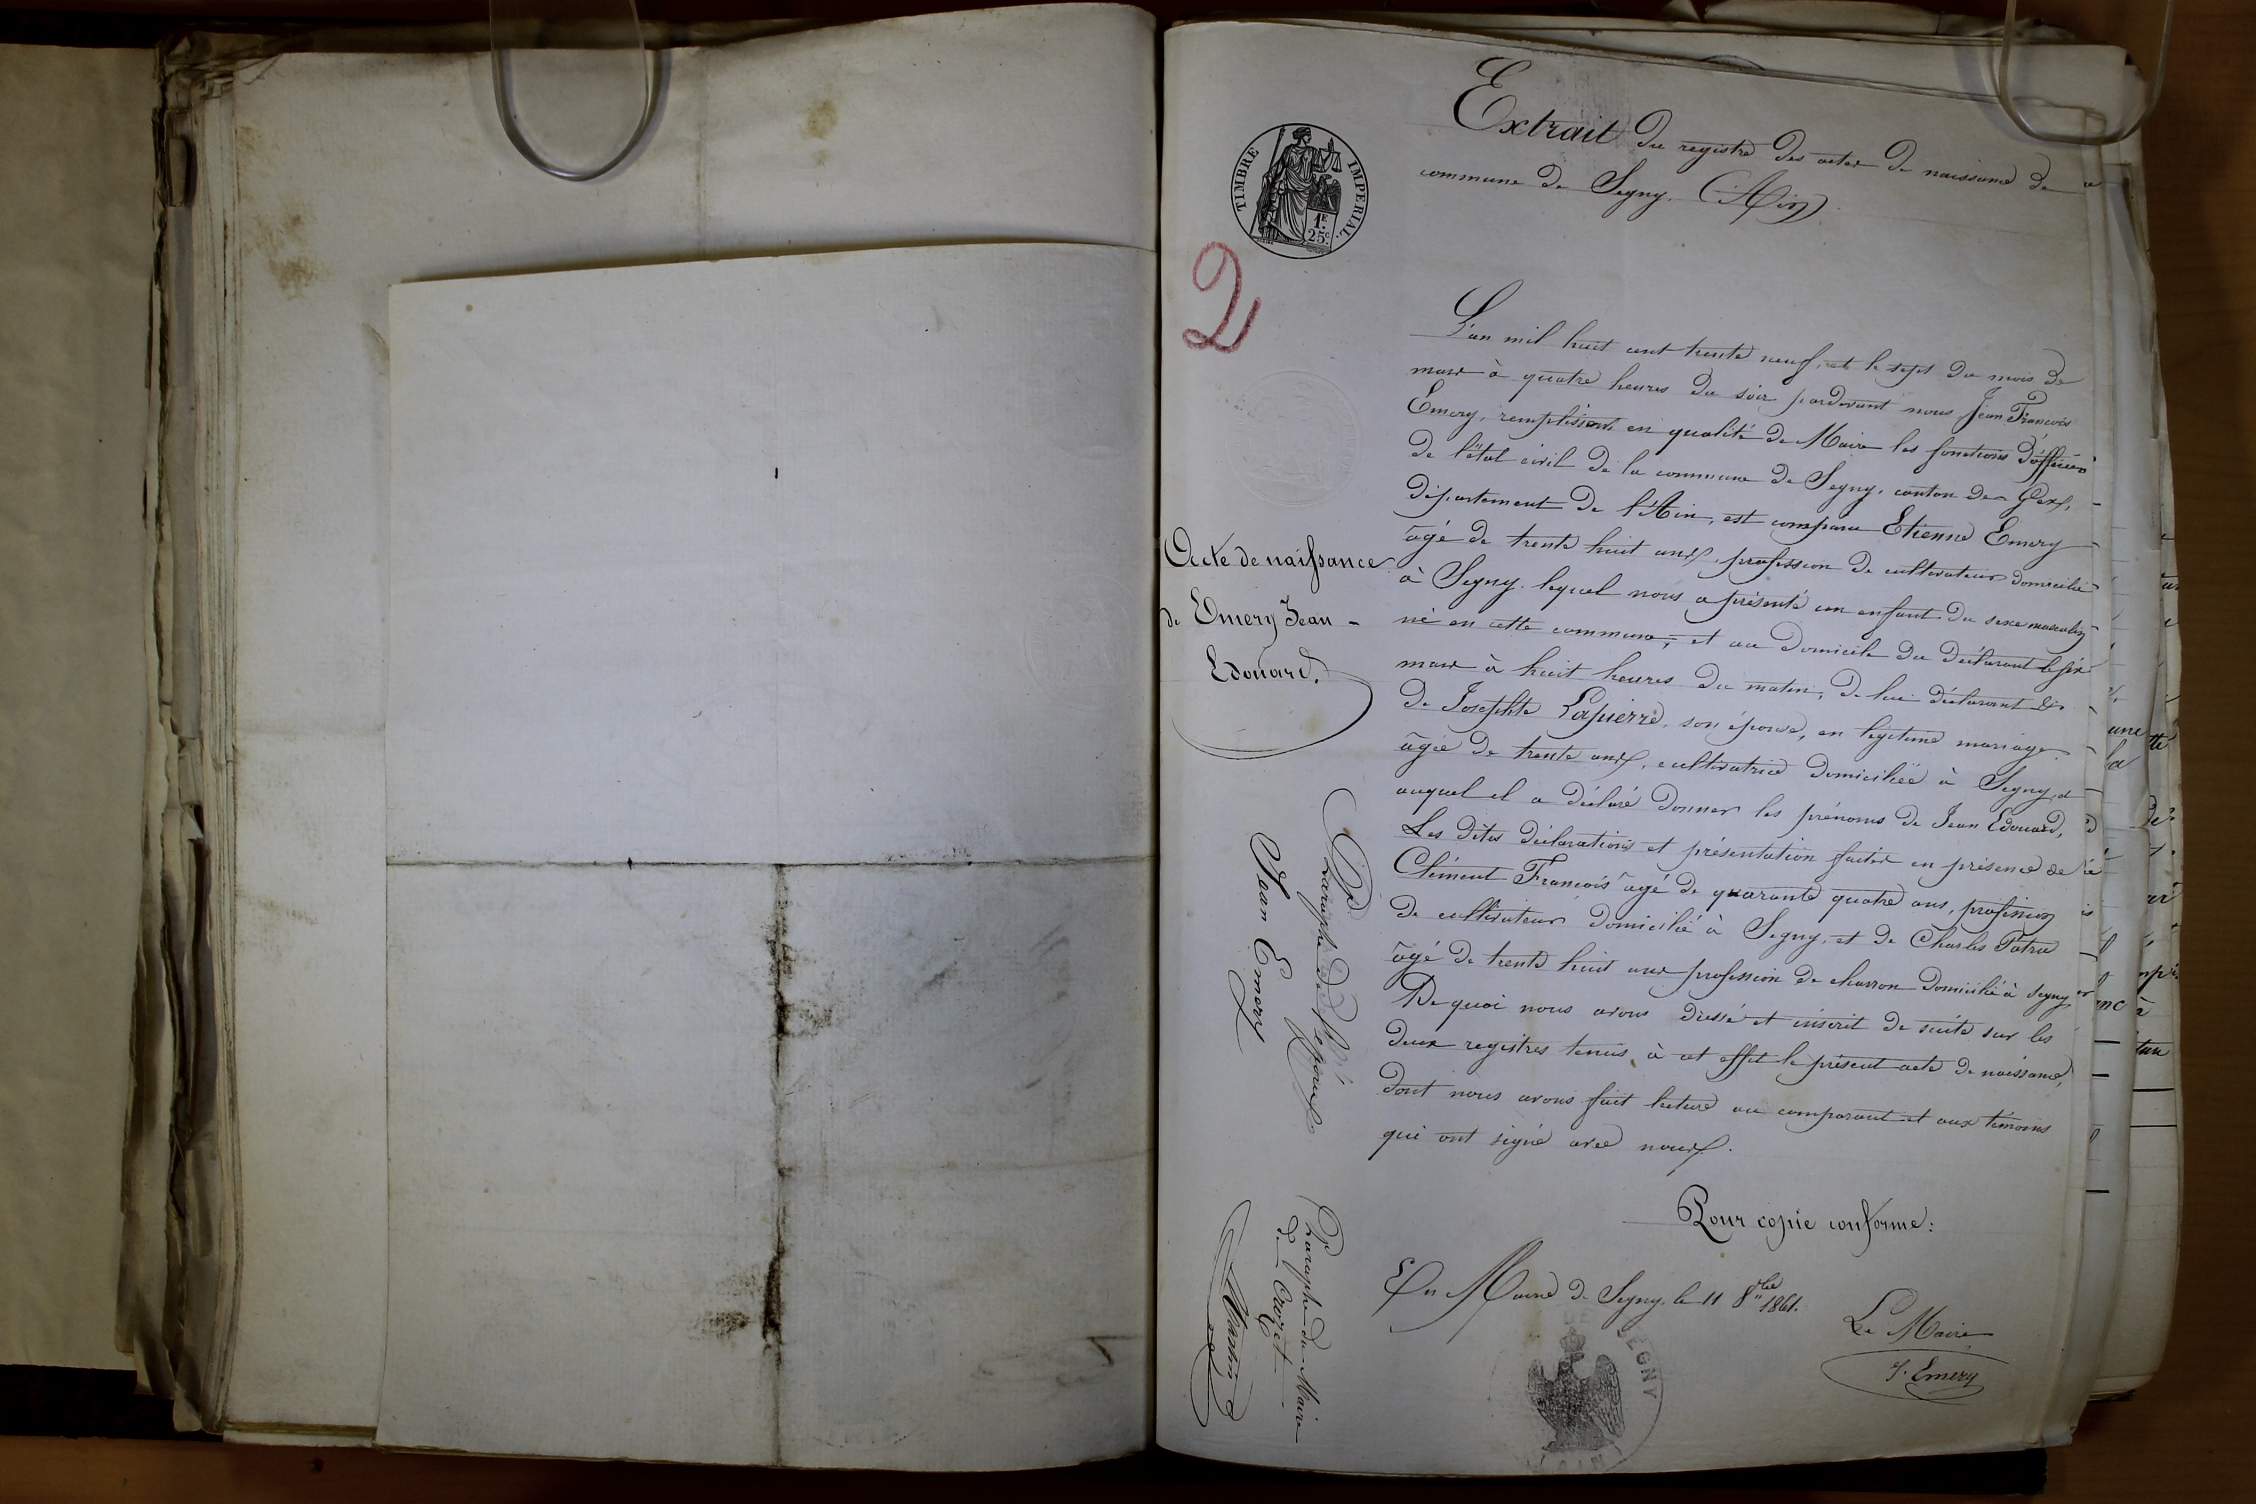 Extrait du registre des actes de naissance de la
commune de Segny. (Ain)
TIMBRE IMPERIAL.
1F.
25c.
2
L'an mil huit cent trente neuf, et le sept du mois de
mars à quatre heures du soir pardevant nous Jean François
Emery, remplissant en qualité de Maire les fonctions d'officier
de l'état civil de la commune de Segny, canton de Gex,
département de l'Ain, est comparu Etienne Emery
âgé de trente huit ans, profession de cultivateur domicilié
à Segny. lequel nous a présenté un enfant du sexe masculin
né en cette commune, et au domicile du déclarant le six
mars à huit heures du matin, de lui déclarant &
de Josephte Lapierre, son épouse, en légitime mariage
âgée de trente ans, cultivatrice domiciliée à Segny, et
auquel il a déclaré donner les prénoms de Jean Edouard,
Les dites déclarations et présentation faites en présence de
Clément François âgé de quarante quatre ans, profession
de cultivateur domicilié à Segny, et de Charles Patru
âgé de trente huit ans profession de charron domicilié à Segny,
De quoi nous avons dressé et inscrit de suite sur les
deux registres tenus à cet effet le présent acte de naissance,
dont nous avons fait lecture au comparant et aux témoins
qui ont signé avec nous.
Acte de naissance
de Emery Jean -
Edouard.
Paraphe de l'époux
Jean Emery
Paraphe du Maire
de Crozet
Martin
Pour copie conforme:
En Mairie de Segny, le 11 8bre 1861.
Le Maire
F. Emery
DE SEGNY
AIN